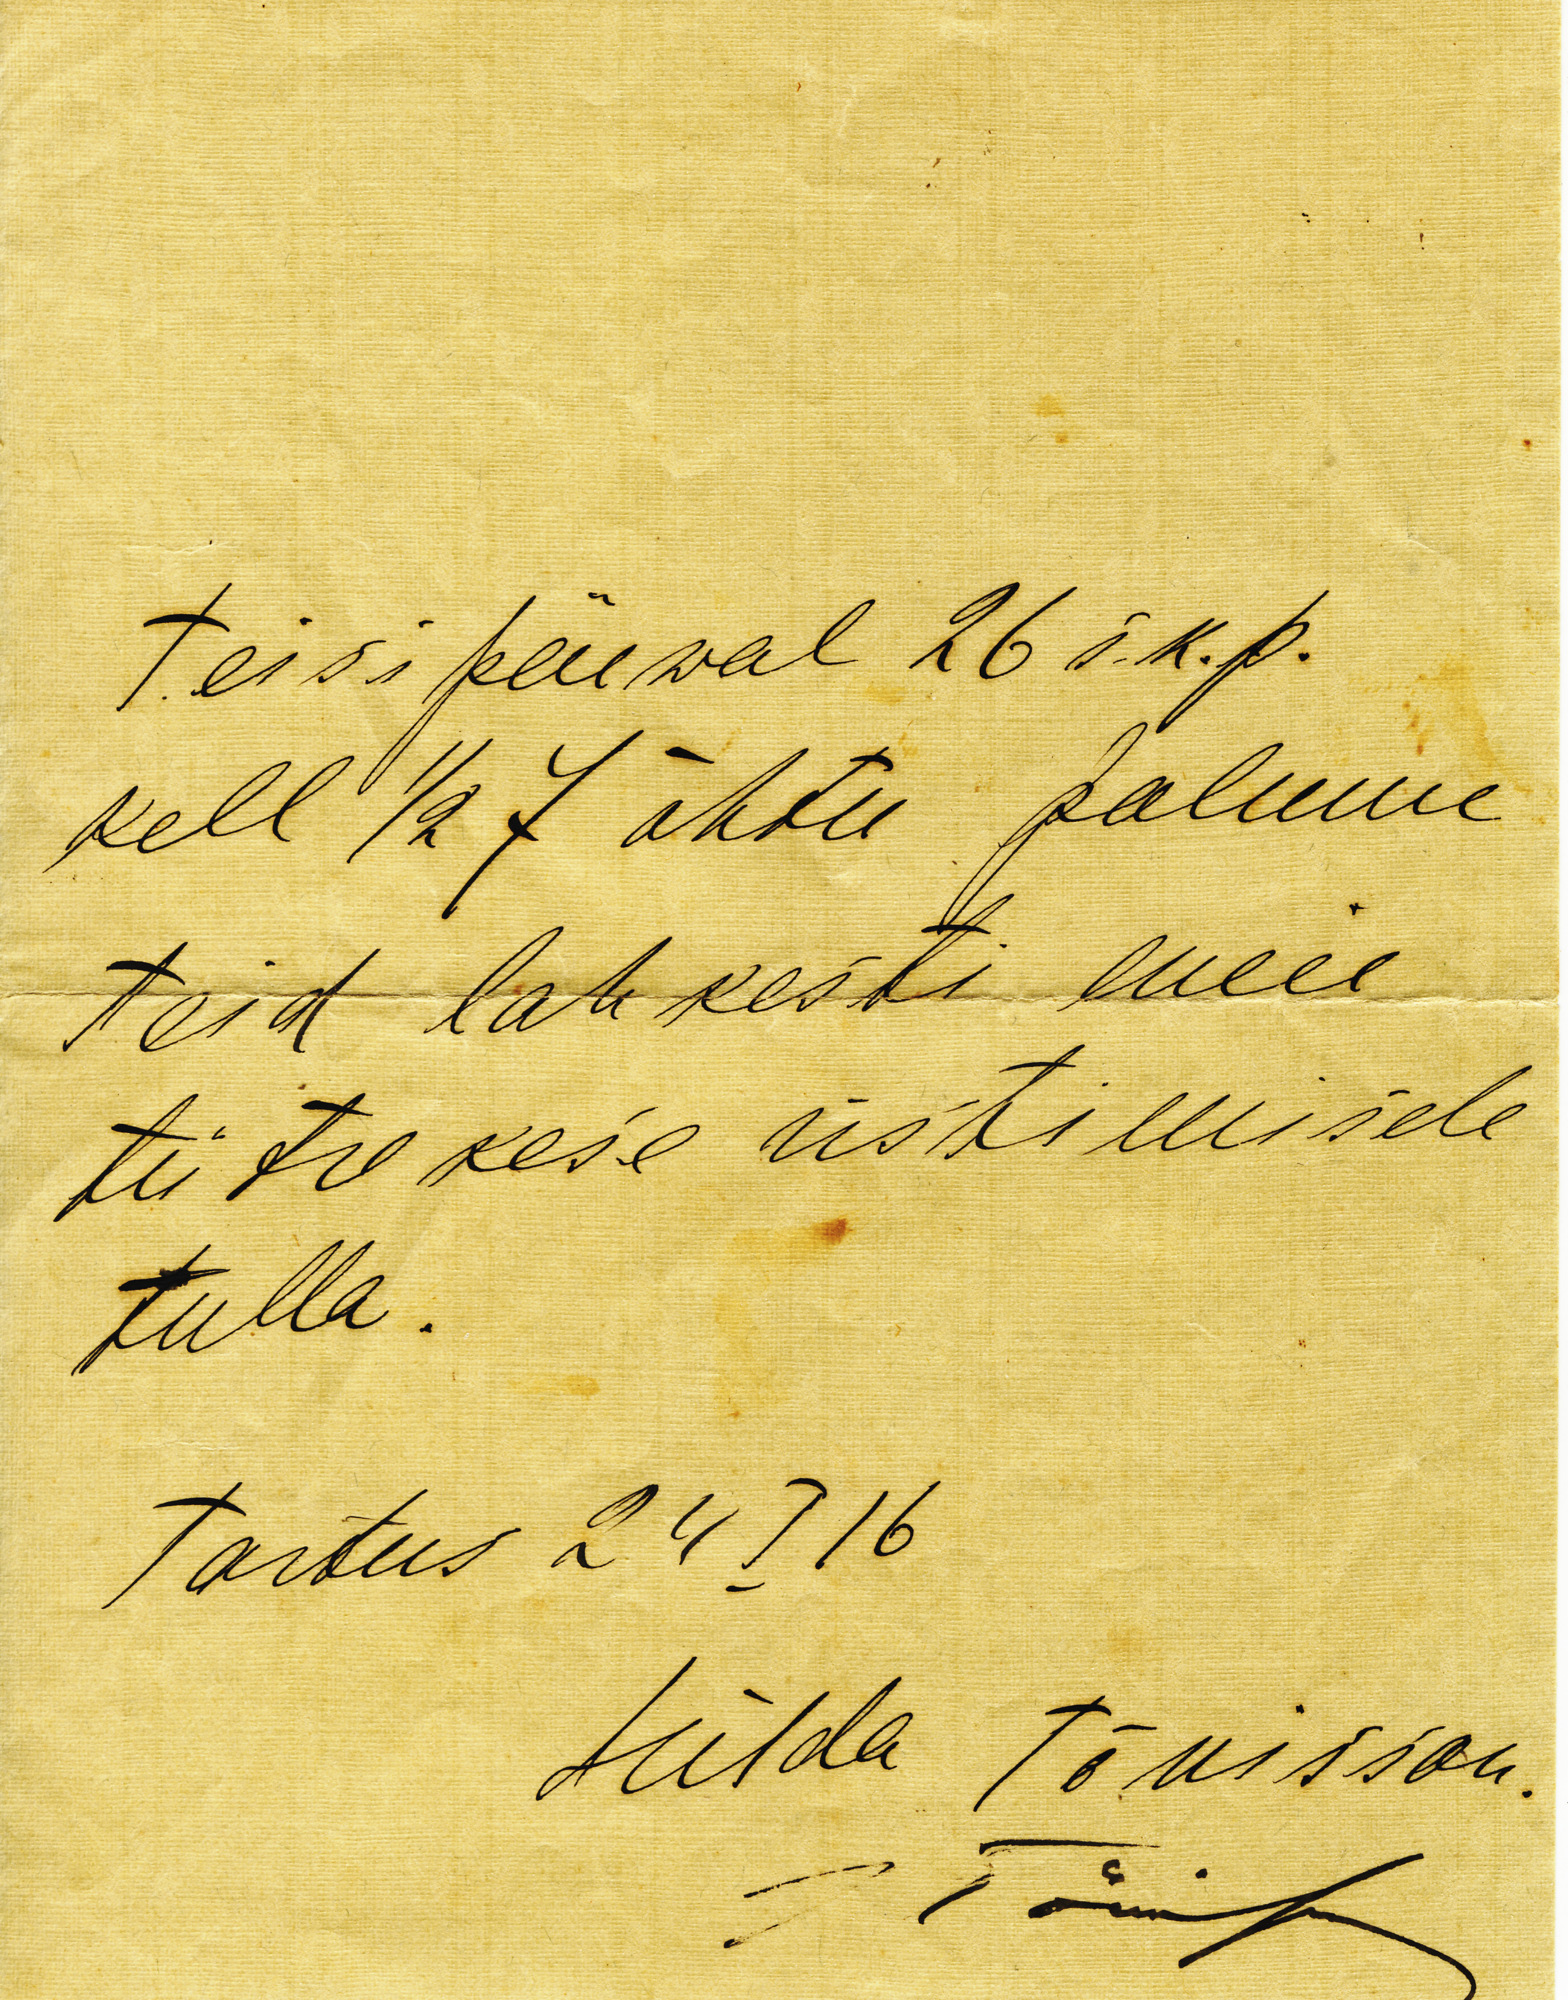 Teisipäewal 26 s.k.p.
kell 1/2 7 õhtu palume
teid lahkesti meie
tütrekese ristimisele
tulla.
Tartus 24 I 16
Hilda Tõnisson.
J Tõnisson